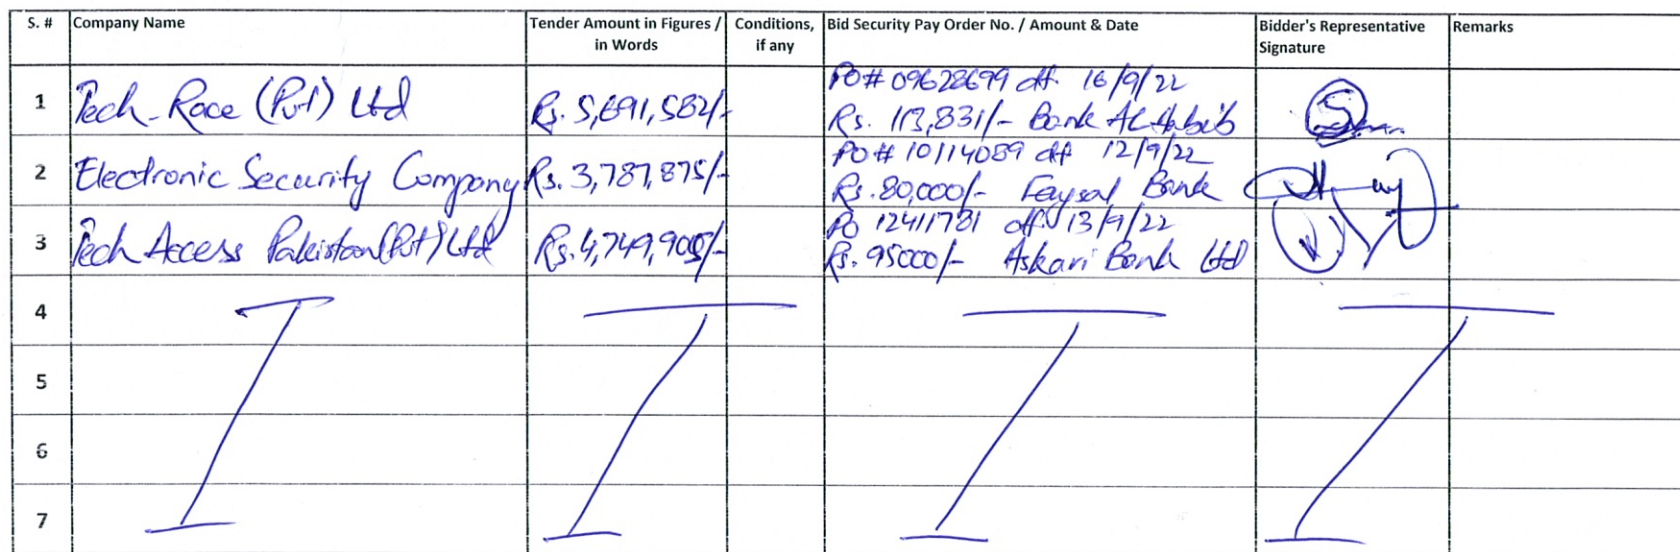 S. # Company Name Tender Amount in Figures / in Words Conditions, if any Bid Security Pay Order No. / Amount & Date Bidder's Representative Signature Remarks
1 Tech-Race (Pvt) Ltd Rs. 5,691,582/-
PO# 09628699 dt. 16/9/22
Rs. 113,831/- Bank AL-Habib
2 Electronic Security Company Rs. 3,787,875/-
PO# 10114089 dt 12/9/22
Rs. 80,000/- Faysal Bank
3 Tech Access Pakistan (Pvt) Ltd Rs. 4,749,905/-
PO 12411781 dt. 13/9/22
Rs. 95000/- Askari Bank Ltd
4
5
6
7